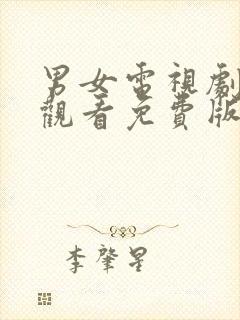 男女電視劇
觀看免費版
李肇星